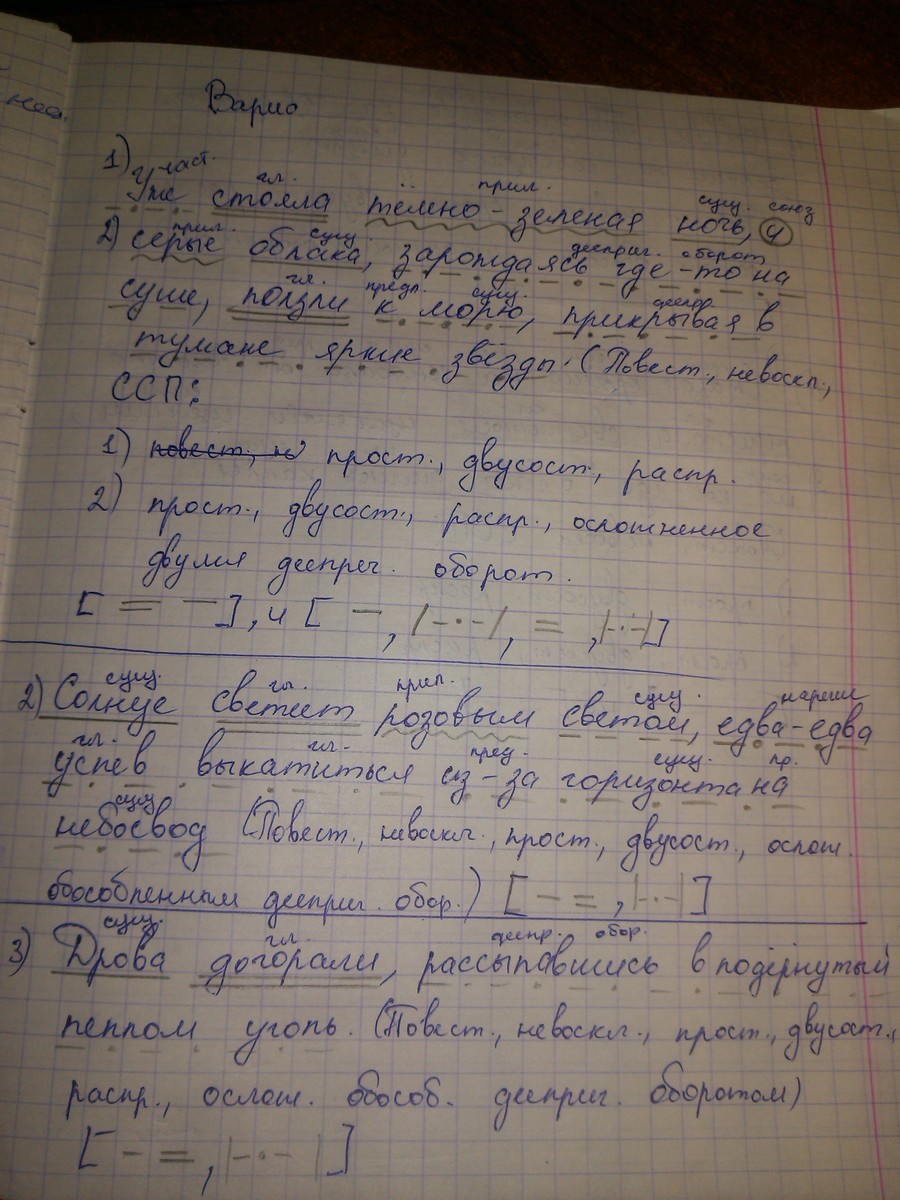 нео.
Варио
1) част. гл. прил. сущ. союз
Уже стояла тёмно-зеленая ночь, и
прил. сущ. дееприг. оборот
2) серые облака, зарождаясь где-то на
гл. предл. сущ. дееприг.
суше, ползли к морю, прикрывая в
тумане яркие звёзды. (Повест., невоскл.,
ССП:
1) повест., не прост., двусост., распр.
2) прост., двусост., распр., осложненное
двумя дееприг. оборот.
[ = — ], и [ —, |—·—|, =, |—·—| ]
сущ. гл. прил. сущ. наречие
2) Солнце светит розовым светом, едва-едва
гл. гл. пред. сущ. пр.
успев выкатиться из-за горизонта на
сущ.
небосвод (Повест., невоскл., прост., двусост., ослож.
обособленным дееприг. обор.) [ — =, |—·—| ]
сущ. гл. дееприг. обор.
3) Дрова догорали, рассыпавшись в подёрнутый
пеплом уголь. (Повест., невоскл., прост., двусост.,
распр., ослож. обособ. дееприг. оборотом)
[ — =, |—·—| ]